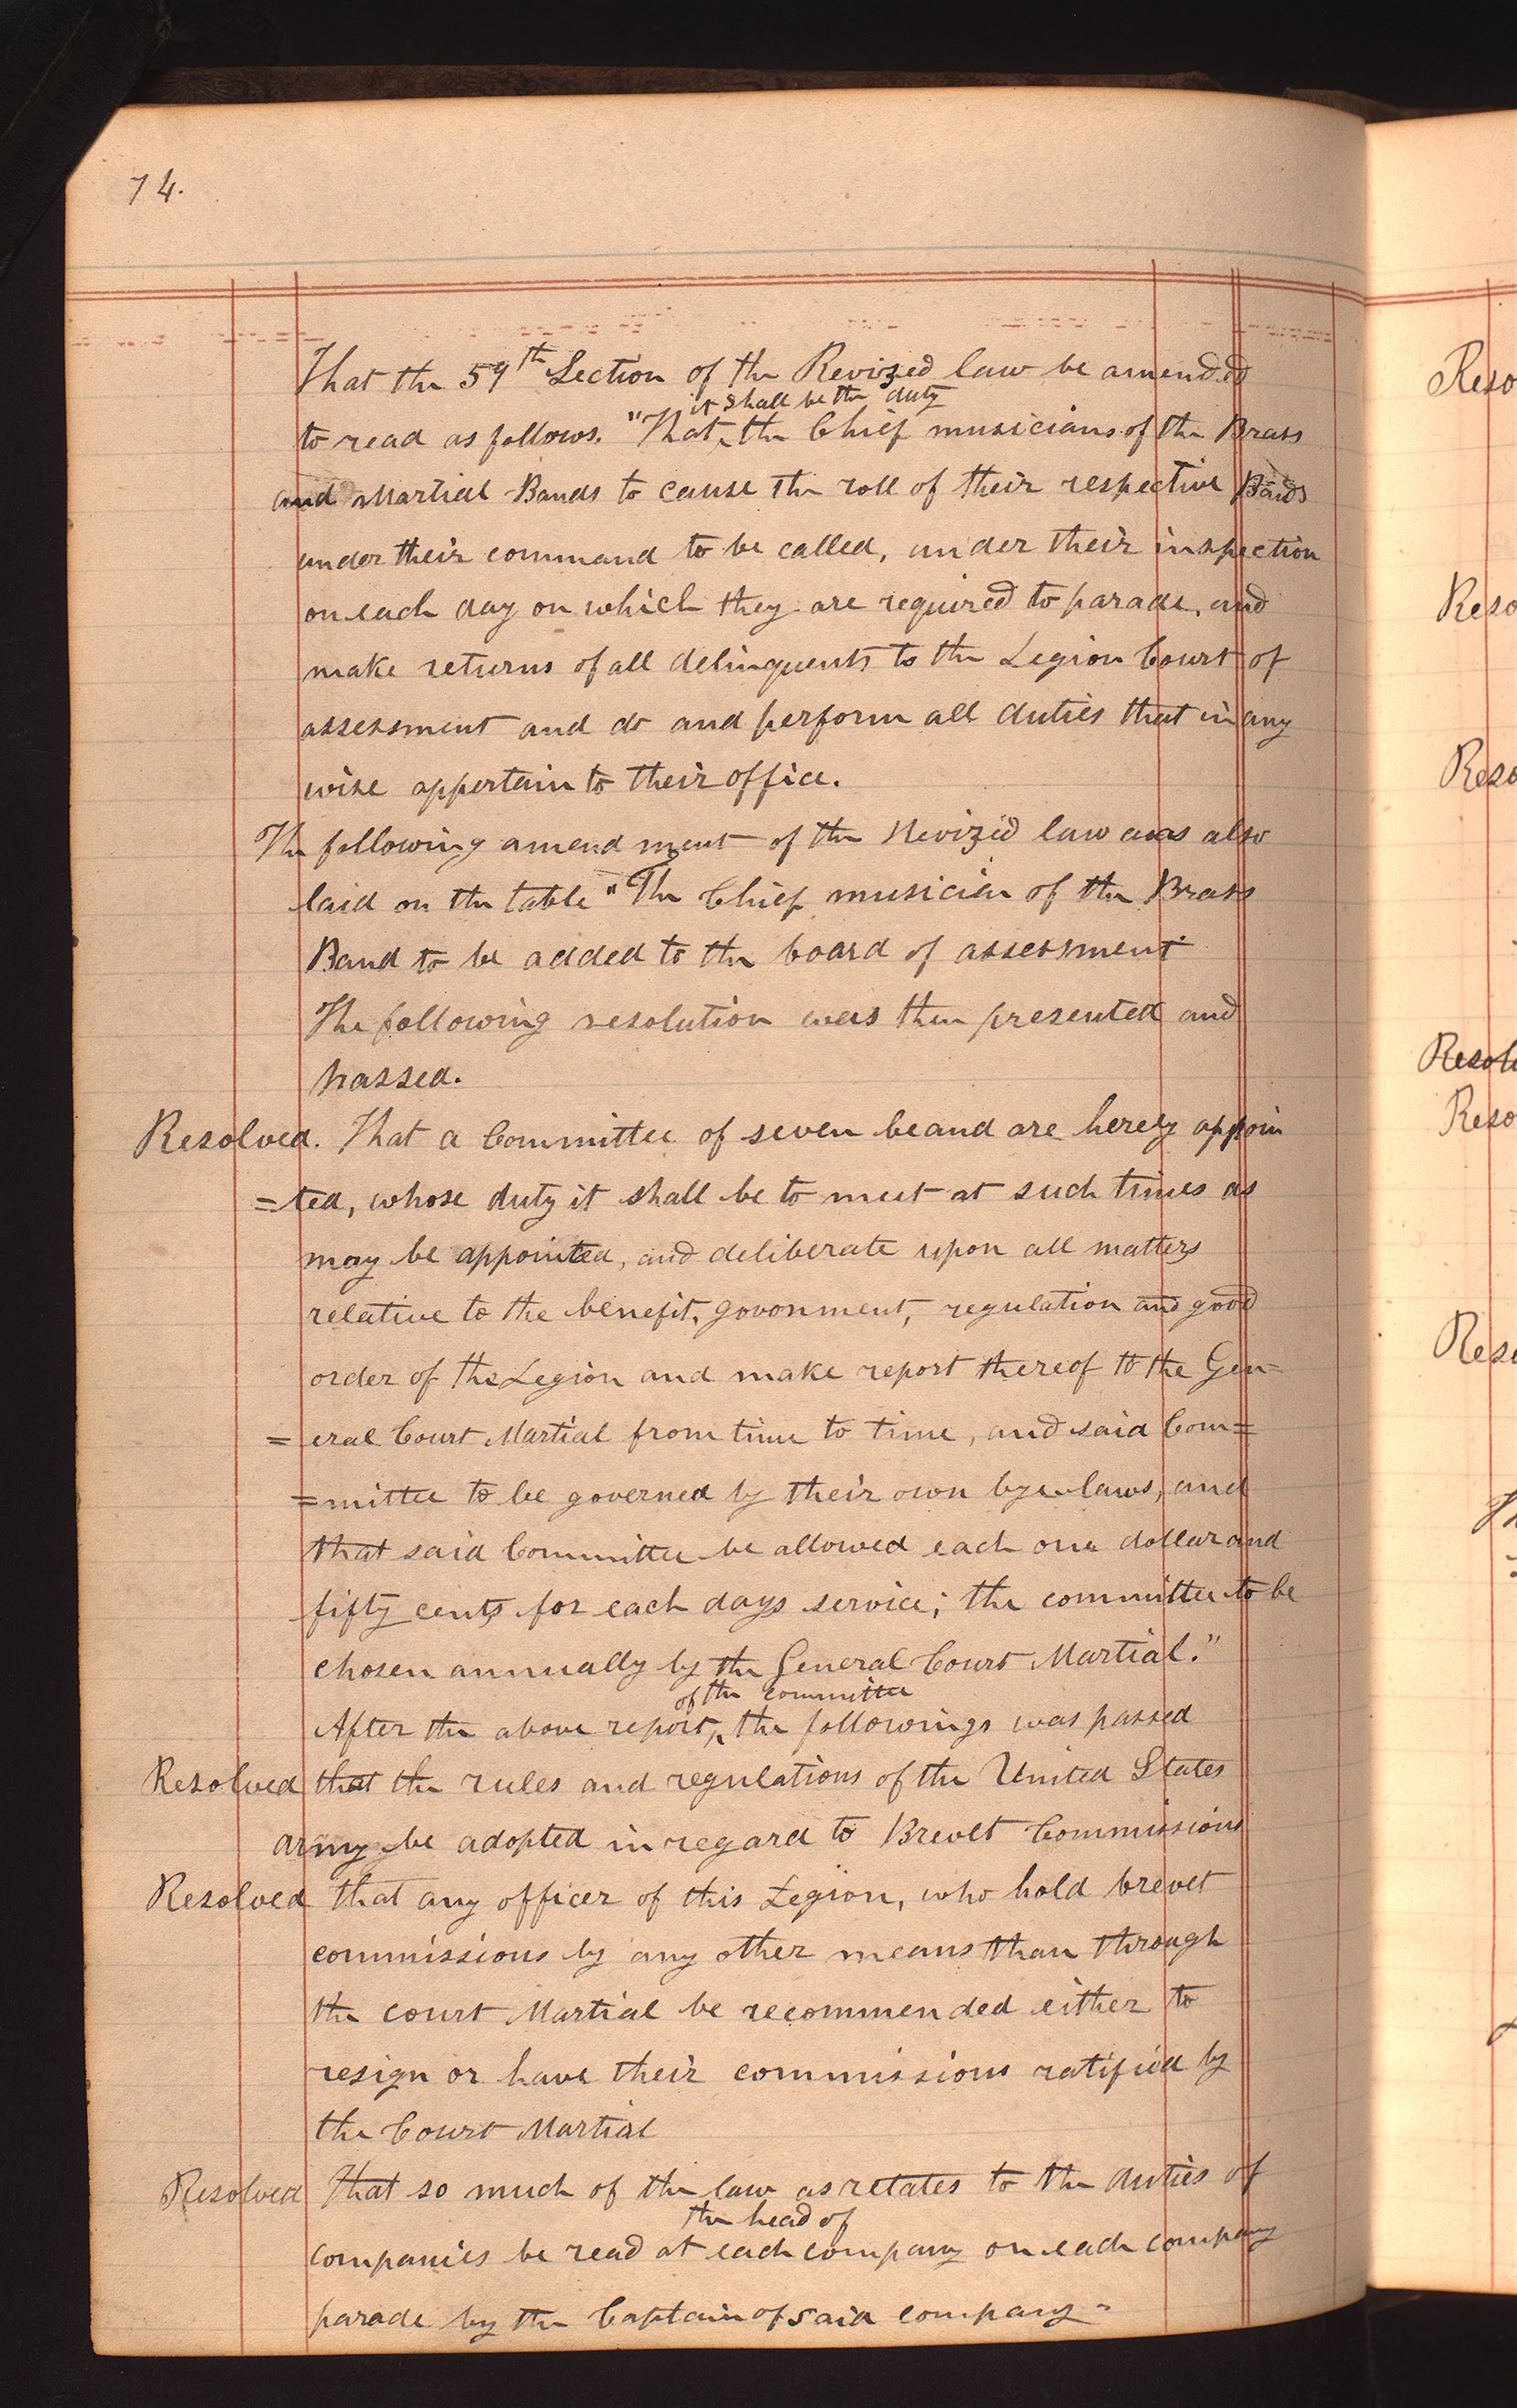 74.
That the 59th Section of the Revized law be amended
it shall be the duty
to read as follows. "That, the Chief musicians of the Brass
and Martial Bands to cause the roll of their respective Bands
under their command to be called, under their inspection
on each day on which they are required to parade, and
make returns of all delinquents to the Legion Court of
assessment and do and perform all duties that in any
wise appertain to their office.
The following amendment of the Revized law was also
laid on the table "The Chief musician of the Brass
Band to be added to the board of assessment"
The following resolution was then presented and
passed.
Resolved. That a Committee of seven be and are hereby appoin
=ted, whose duty it shall be to meet at such times as
may be appointed, and deliberate upon all matters
relative to the benefit, govonment, regulation and good
order of the Legion and make report thereof to the Gen=
=eral Court Martial from time to time, and said Com=
=mittee to be governed by their own bye laws, and
that said Committee be allowed each one dollar and
fifty cents for each days service; the committee to be
chosen annually by the General Court Martial."
of the committee
After the above report, the followings was passed
Resolved that the rules and regulations of the United States
army be adopted in regard to Brevet Commissions
Resolved that any officer of this Legion, who hold brevet
commissions by any other means than through
the court Martial be recommended either to
resign or have their commissions ratified by
the Court Martial
Resolved That so much of the law as relates to the duties of
the head of
companies be read at each company on each company
parade by the Captain of said company-
Reso
Reso
Reso
Resol
Reso
Reso
Th